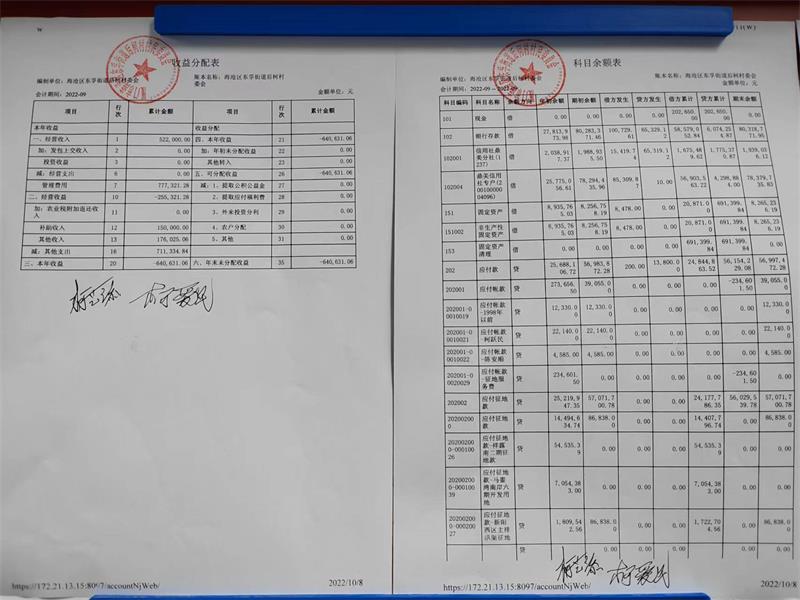 W
收益分配表
编制单位：海沧区东孚街道后柯村村委会
账本名称：海沧区东孚街道后柯村
委会
会计期间：2022-09
金额单位：元
项目 行次 累计金额 项目 行次 累计金额
本年收益 收益分配
一、经营收入 1 522,000.00 四、本年收益 21 -640,631.06
加：发包上交收入 2 0.00 加：年初未分配收益 22 0.00
投资收益 3 0.00 其他转入 23 0.00
减：经营支出 6 0.00 五、可分配收益 26 -640,631.06
管理费用 7 777,321.28 减：1、提取公积公益金 27 0.00
二、经营收益 10 -255,321.28 2、提取应付福利费 28 0.00
加：农业税附加返还收入 11 0.00 3、外来投资分利 29 0.00
补助收入 12 150,000.00 4、农户分配 30 0.00
其他收入 13 176,025.06 5、其他 31 0.00
减：其他支出 16 711,334.84
三、本年收益 20 -640,631.06 六、年末未分配收益 35 -640,631.06
https://172.21.13.15:8097/accountNjWeb/
2022/10/8
科目余额表
编制单位：海沧区东孚街道后柯村村委会
账本名称：海沧区东孚街道后柯村村委会
会计期间：2022-09 -- 2022-09
金额单位：元
科目编码 科目名称 余额方向 年初余额 期初余额 借方发生 贷方发生 借方累计 贷方累计 期末余额
101 现金 借 0.00 0.00 0.00 0.00 202,650.00 202,650.00 0.00
102 银行存款 借 27,813,973.98 80,283,371.46 100,729.61 65,329.12 58,579,052.84 6,074,254.87 80,318,771.95
102001 信用社鼎美分社(1237) 借 2,038,917.37 1,988,935.50 15,419.74 65,319.12 1,675,489.62 1,775,370.87 1,939,036.12
102004 鼎美信用社专户(20010000004096) 借 25,775,056.61 78,294,435.96 85,309.87 10.00 56,903,563.22 4,298,884.00 78,379,735.83
151 固定资产 借 8,935,765.03 8,256,758.19 8,478.00 0.00 20,871.00 691,399.84 8,265,236.19
151002 非生产性固定资产 借 8,935,765.03 8,256,758.19 8,478.00 0.00 20,871.00 691,399.84 8,265,236.19
153 固定资产清理 借 0.00 0.00 0.00 0.00 691,399.84 691,399.84 0.00
202 应付款 贷 25,688,106.72 56,983,872.28 200.00 13,800.00 24,844,863.52 56,154,229.08 56,997,472.28
202001 应付帐款 贷 273,656.50 39,055.00 0.00 0.00 0.00 -234,601.50 39,055.00
202001-00010019 应付帐款-1998年以前 贷 12,330.00 12,330.00 0.00 0.00 0.00 0.00 12,330.00
202001-00010021 应付帐款-柯跃民 贷 22,140.00 22,140.00 0.00 0.00 0.00 0.00 22,140.00
202001-00010022 应付帐款-陈安顺 贷 4,585.00 4,585.00 0.00 0.00 0.00 0.00 4,585.00
202001-00020029 应付帐款-征地服务费 贷 234,601.50 0.00 0.00 0.00 0.00 -234,601.50 0.00
202002 应付征地款 贷 25,219,947.35 57,071,700.78 0.00 0.00 24,177,786.35 56,029,539.78 57,071,700.78
202002000 应付征地款 贷 14,494,634.74 86,838.00 0.00 0.00 14,407,796.74 0.00 86,838.00
202002000-00010026 应付征地款-祥露南二期征地款 贷 54,535.39 0.00 0.00 0.00 54,535.39 0.00 0.00
202002000-00010039 应付征地款-马銮湾南岸六期开发用地 贷 7,054,383.00 0.00 0.00 0.00 7,054,383.00 0.00 0.00
202002000-00020027 应付征地款-新阳西区主排洪渠征地 贷 1,809,542.56 86,838.00 0.00 0.00 1,722,704.56 0.00 86,838.00
0.00 0.00 0.00
https://172.21.13.15:8097/accountNjWeb/
2022/10/8